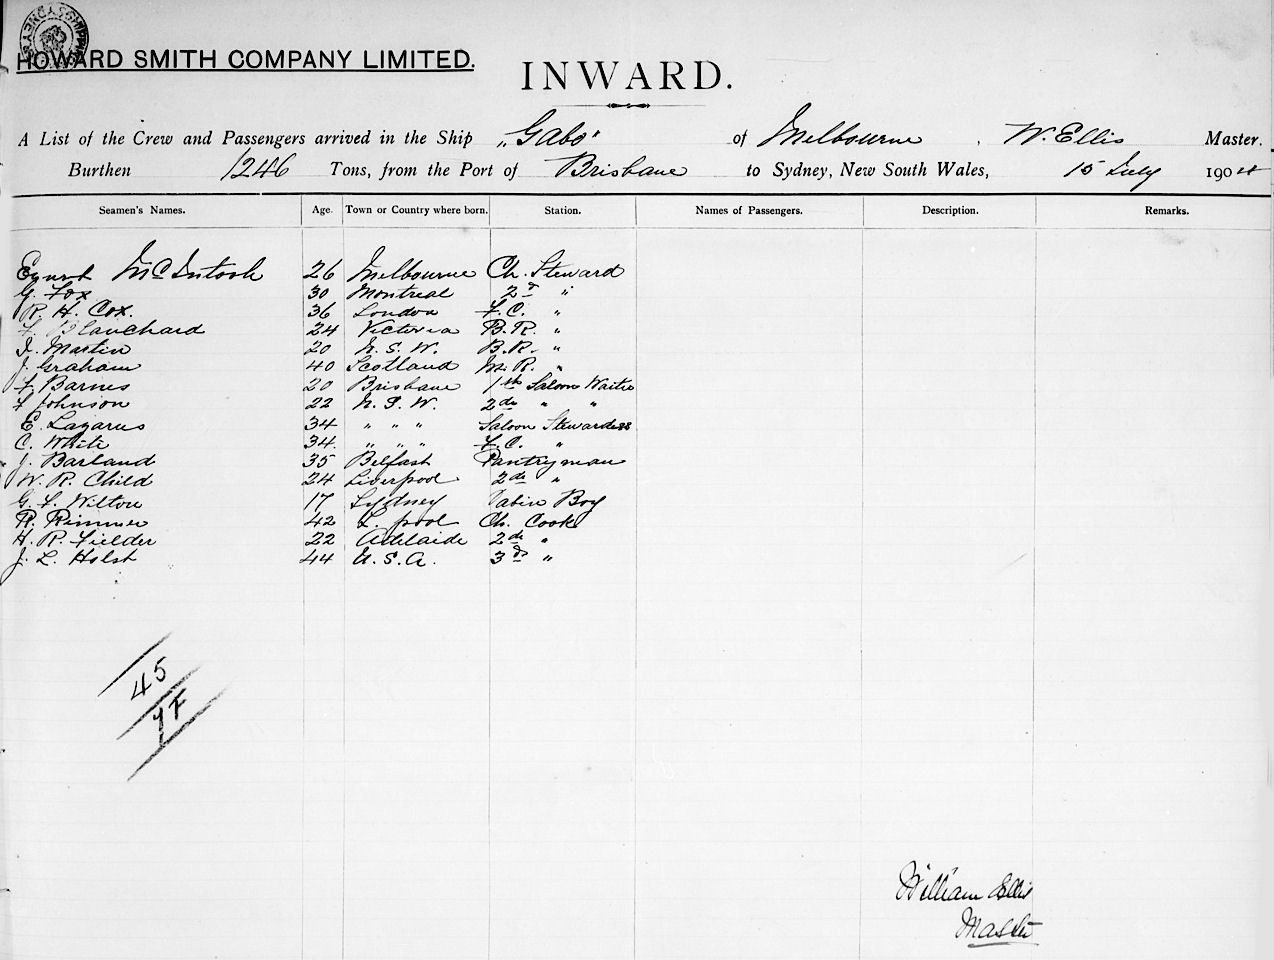 HOWARD SMITH COMPANY LIMITED.
INWARD.
A List of the Crew and Passengers arrived in the Ship "Gabo" of Melbourne, W. Ellis Master.
Burthen 1246 Tons, from the Port of Brisbane to Sydney, New South Wales, 15 July 1904
Seamen's Names. Age. Town or Country where born. Station. Names of Passengers. Description. Remarks.
McIntosh 26 Melbourne Ch. Steward
G. Fox 30 Montreal 2d "
R. H. Cox. 36 London F.C. "
F. Blanchard 24 Victoria B.R. "
Martin 20 N.S.W. B.R. "
J. Graham 40 Scotland M.R. "
F. Barnes 20 Brisbane 1st Saloon Waiter
F Johnson 22 N.S.W. 2de " "
E. Lazarus 34 " " " Saloon Stewardess
C. White 34 " " " F.C. "
J. Barland 35 Belfast Pantryman
W. R. Child 24 Liverpool 2de "
G. F. Wilton 17 Sydney Cabin Boy
R. Rimmer 42 L. pool Ch. Cook
H. R. Fielder 22 Adelaide 2de "
J. L. Holst 44 U.S.A. 3d "
45
William Ellis
Master